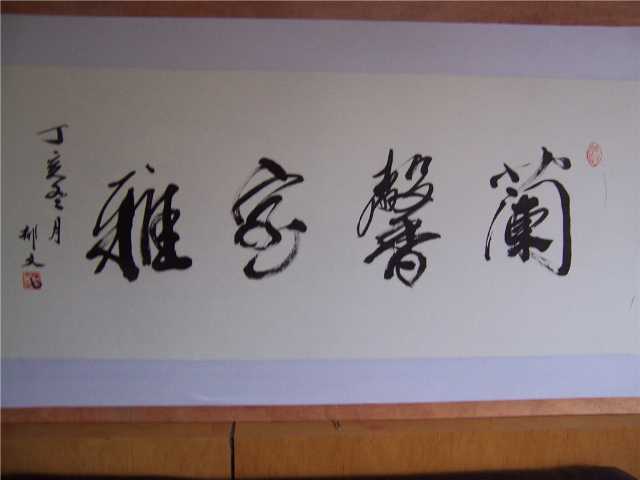 蘭馨室雅
丁亥冬月
文